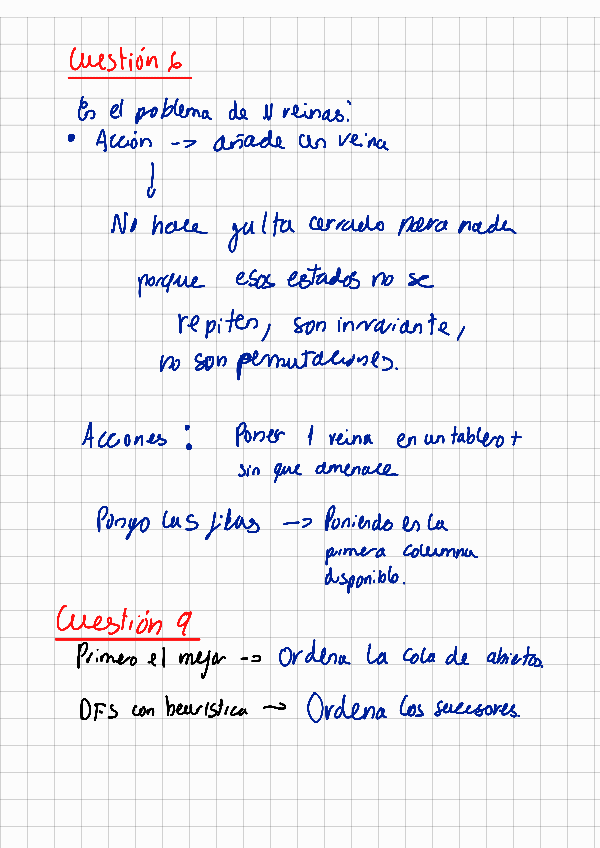 Cuestión 6
En el problema de N reinas:
• Acción -> añade un reina
No hace falta cerrado para nada
porque esos estados no se
repiten, son invariante,
no son permutaciones.
Acciones : Poner 1 reina en un tablero +
sin que amenace
Pongo las filas -> Poniendo en la
primera columna
disponible.
Cuestión 9
Primero el mejor -> Ordena la cola de abiertos.
DFS con heurística -> Ordena los sucesores.